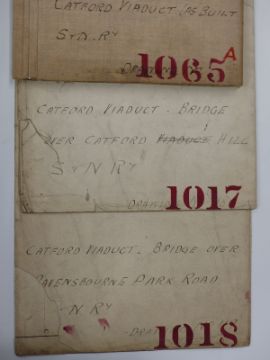 CATFORD VIADUCT (AS BUILT
S & N. RY
DRA
1065 A
CATFORD VIADUCT. BRIDGE
OVER CATFORD VIADUCT HILL
S & N RY
DRAWI
1017
CATFORD VIADUCT. BRIDGE OVER
RAVENSBOURNE PARK ROAD
N. RY
DRA
1018